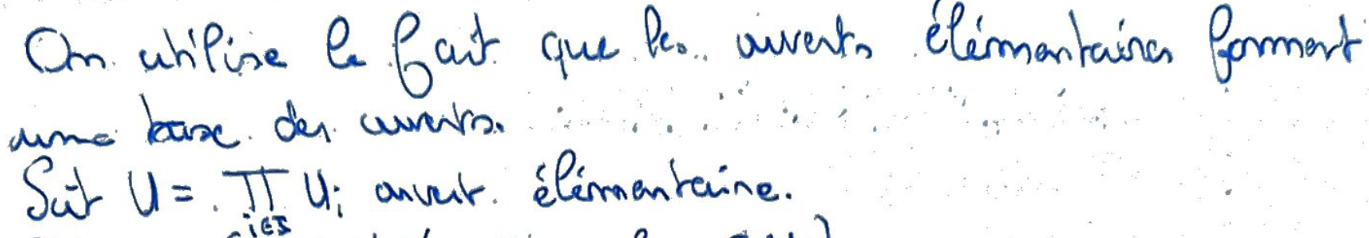 On utilise le fait que les ouverts élémentaires forment
une base des ouverts.
Soit U = ∏_{i∈I} U_i ouvert élémentaire.